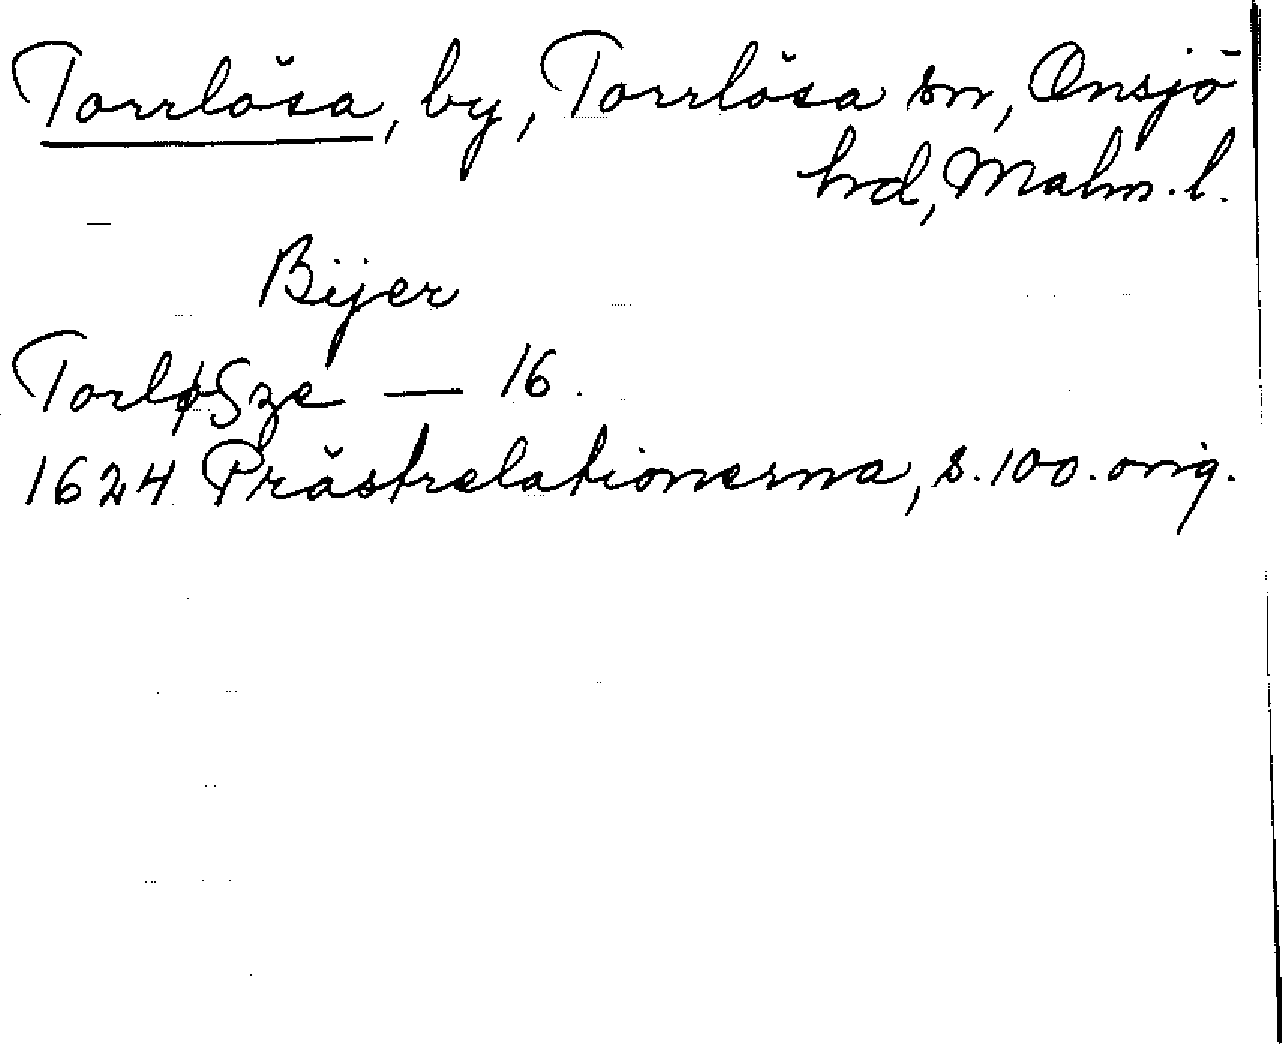 Torrlösa, by, Torrlösa sn, Onsjö
hd, Malm. l.
Bijer
TorløSze — 16.
1624 Prästrelationerna, s. 100. orig.